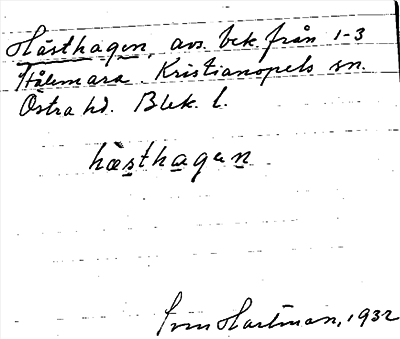 Hästhagen, avs. bek. från 1-3
Tålemara Kristianopels sn.
Östra hd. Blek. l.
hästhagen
Hartman, 1932